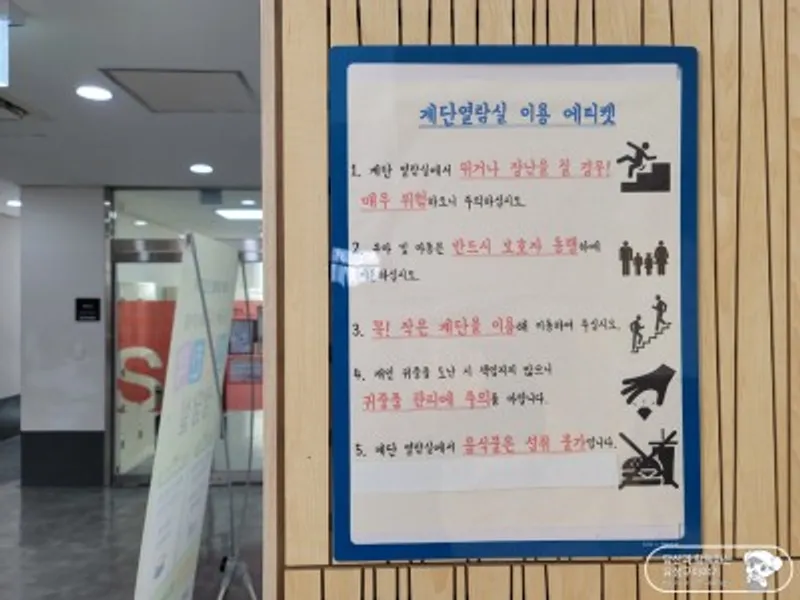 계단열람실 이용 에티켓
1. 계단 열람실에서 뛰거나 장난을 칠 경우!
매우 위험하오니 주의하십시오.
2. 유아 및 아동은 반드시 보호자 동행하에
하십시오.
3. 꼭! 작은 계단을 이용해 이동하여 주십시오.
4. 개인 귀중품 도난 시 책임지지 않으니
귀중품 관리에 주의를 바랍니다.
5. 계단 열람실에서 음식물은 섭취 불가입니다.
S